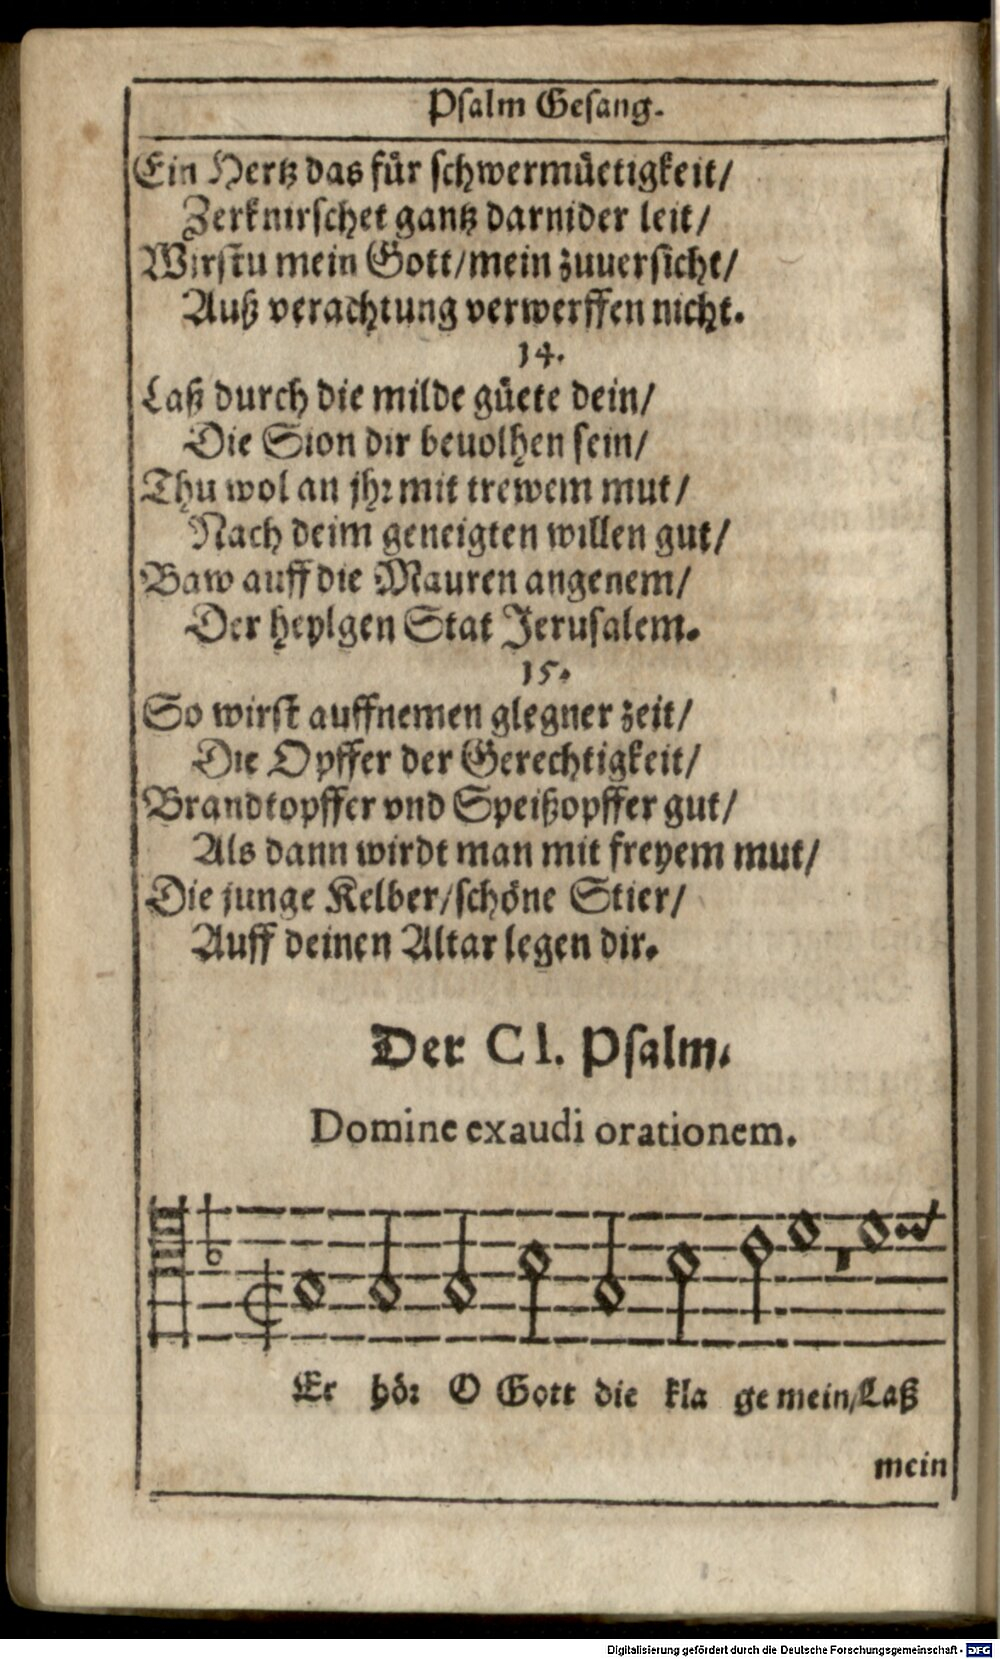 Psalm Gesang.
Ein Hertz das für schwermüetigkeit/
Zerknirschet gantz darnider leit/
Wirstu mein Gott/mein zuuersicht/
Auß verachtung verwerffen nicht.
14.
Laß durch die milde güete dein/
Die Sion dir beuolhen sein/
Thu wol an jhr mit trewem mut/
Nach deim geneigten willen gut/
Baw auff die Mauren angenem/
Der heylgen Stat Jerusalem.
15.
So wirst auffnemen glegner zeit/
Die Opffer der Gerechtigkeit/
Brandtopffer vnd Speißopffer gut/
Als dann wirdt man mit freyem mut/
Die junge Kelber/schöne Stier/
Auff deinen Altar legen dir.
Der CI. Psalm.
Domine exaudi orationem.
Er hör O Gott die kla ge mein/Laß
mein
Digitalisierung gefördert durch die Deutsche Forschungsgemeinschaft - DFG